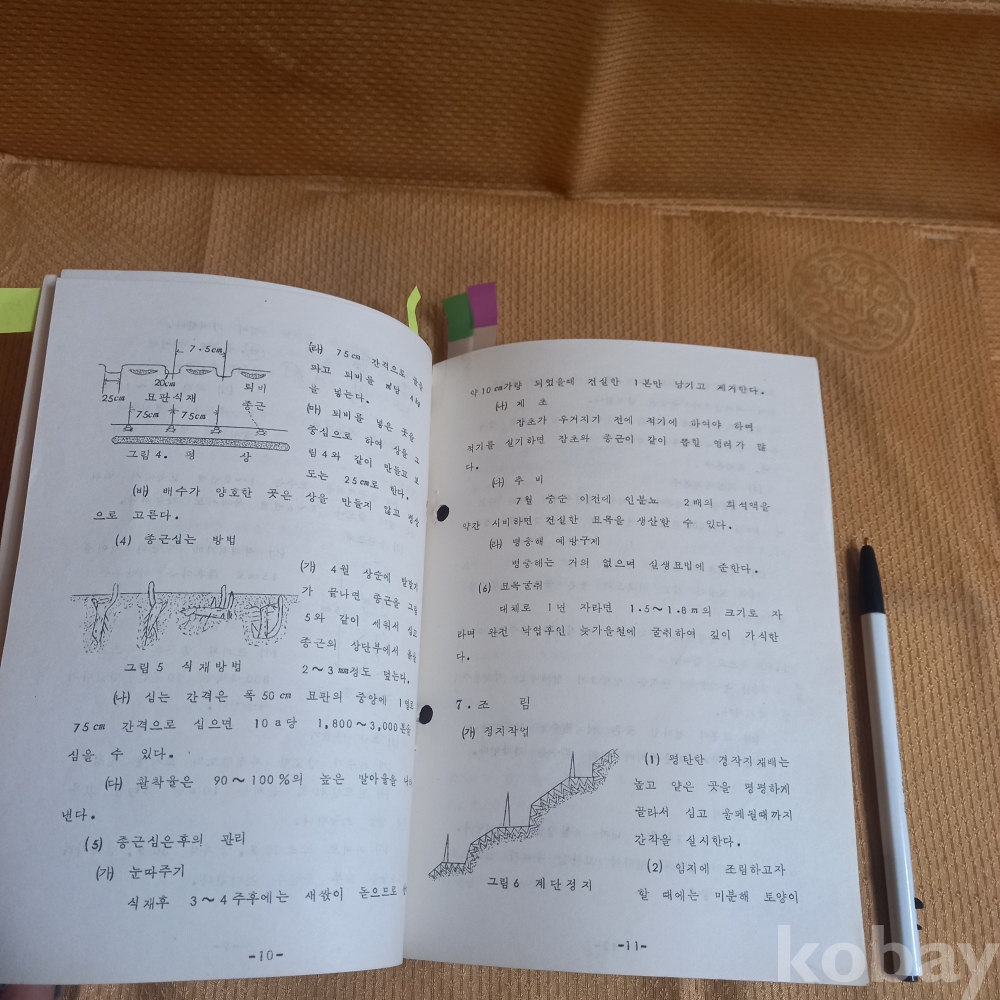 7.5cm
20cm
25cm
퇴비
묘판식재
종근
75cm 75cm
그림4. 평 상
(라) 75cm 간격으로 골을
파고 퇴비를 ㎡당
을 넣는다.
(마) 퇴비를 넣은 곳을
중심으로 하여 상을 그
림 4와 같이 만들고
도는 25cm로 한다.
(바) 배수가 양호한 곳은 상을 만들지 않고 평상
으로 고른다.
(4) 종근심는 방법
(가) 4월 상순에
가 끝나면 종근을 그림
5와 같이 세워서 심고
종근의 상단부에서 흙을
2~3㎜정도 덮는다.
그림5 식재방법
(나) 심는 간격은 폭 50cm 묘판의 중앙에 1열로
75cm 간격으로 심으면 10a당 1,800~3,000본을
심을 수 있다.
(다) 활착율은 90~100%의 높은 발아율을
낸다.
(5) 종근심은후의 관리
(가) 눈따주기
식재후 3~4주후에는 새싻이 돋으므로
-10-
약 10cm가량 되었을때 건실한 1본만 남기고 제거한다.
(나) 제 초
잡초가 우거지기 전에 적기에 하여야 하며
적기를 실기하면 잡초와 종근이 같이 뽑힐 염려가 많
다.
(다) 추 비
7월 중순 이전에 인분뇨 2배의 희석액을
약간 시비하면 건실한 묘목을 생산할 수 있다.
(라) 병충해 예방구제
병충해는 거의 없으며 실생묘법에 준한다.
(6) 묘목굴취
대체로 1년 자라면 1.5~1.8m의 크기로 자
라며 완전 낙엽후인 늦가운철에 굴취하여 깊이 가식한
다.
7. 조 림
(가) 정지작업
(1) 평탄한 경작지재배는
높고 얕은 곳을 평평하게
골라서 심고 울폐될때까지
간작을 실시한다.
(2) 임지에 조림하고자
할 때에는 미분해 토양이
그림6 계단정지
-11-
kobay